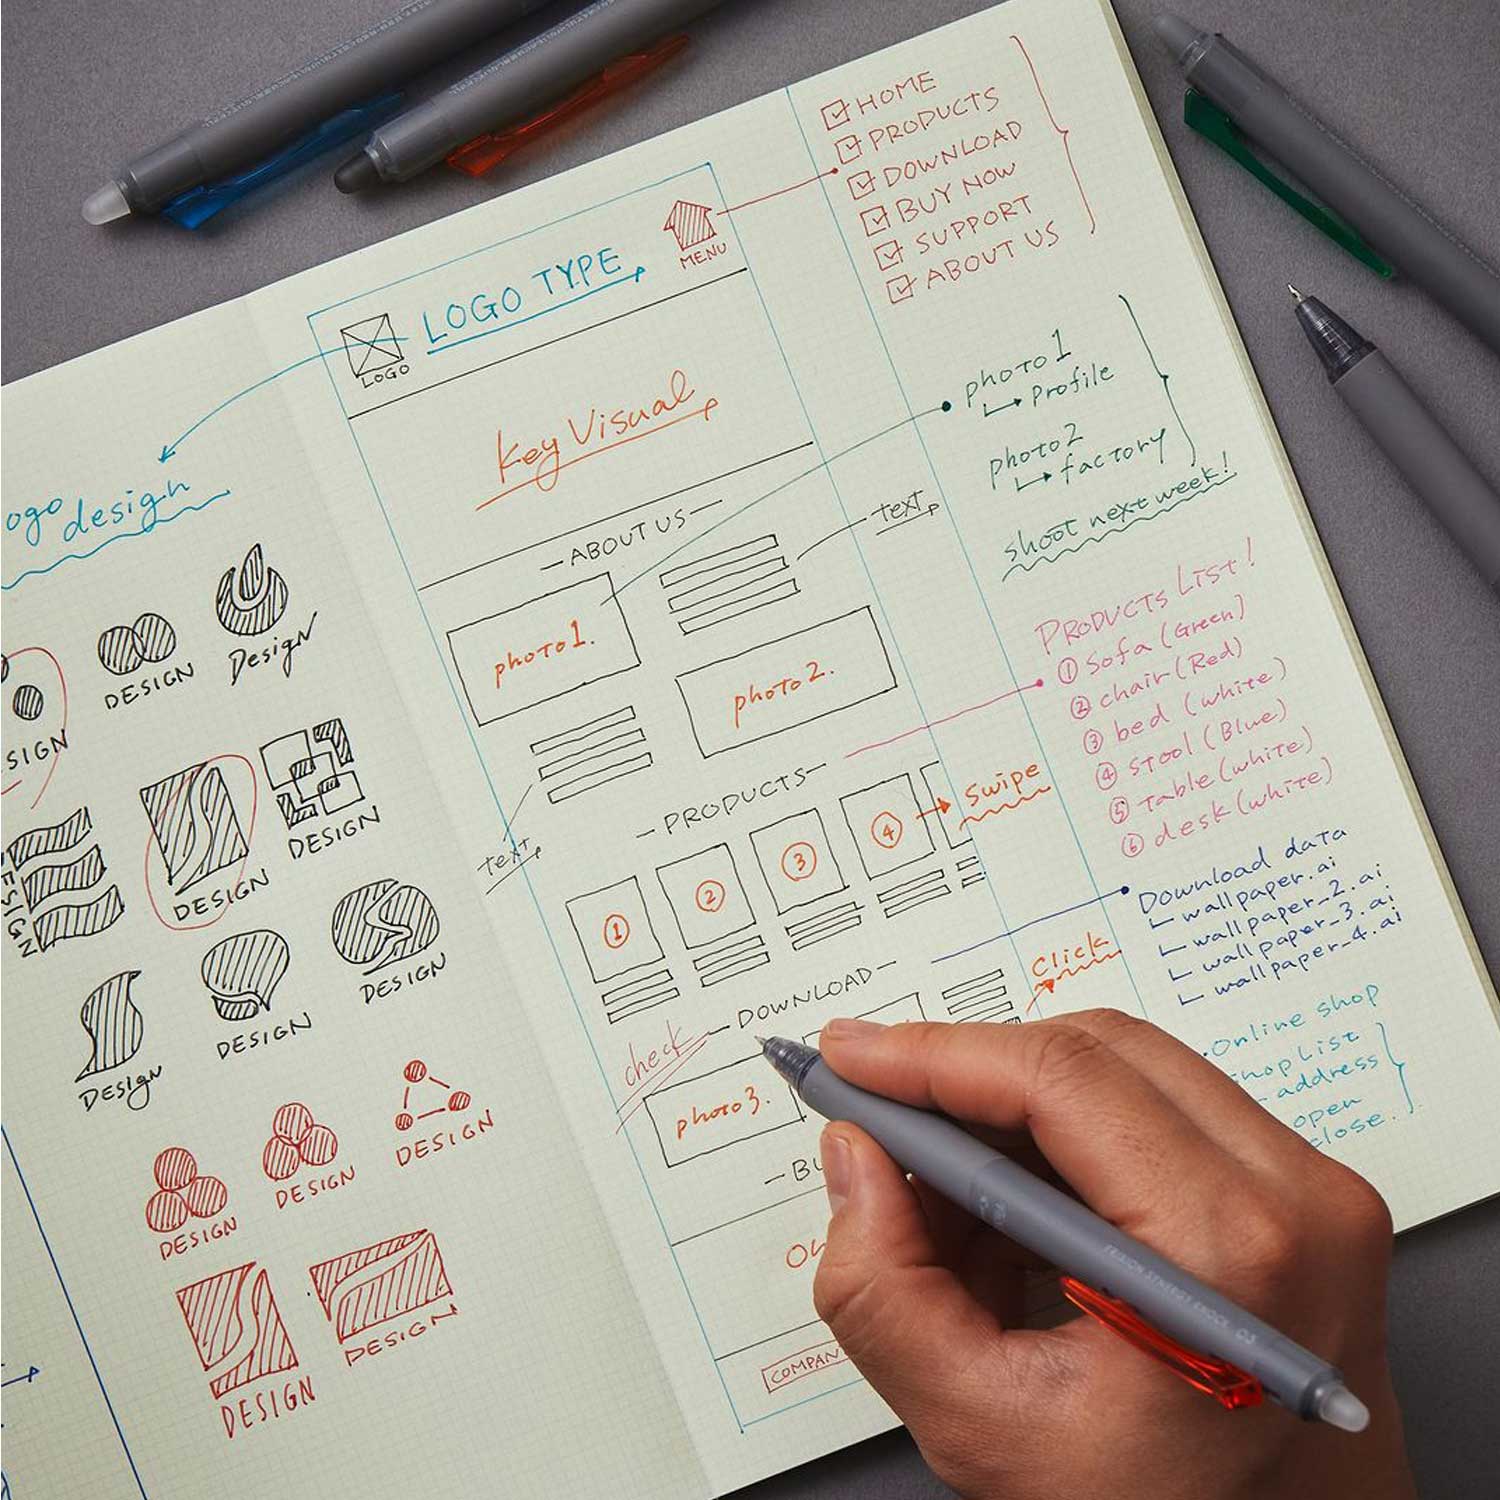 design
DESIGN
Design
SIGN
DESIGN
DESIGN
DESIGN
Design
DESIGN
DESIGN
DESIGN
DESIGN
DESIGN
DESIGN
DESIGN
LOGO
LOGO TYPE
MENU
Key Visual
ABOUT US
photo1.
text
photo2.
text
PRODUCTS
1
2
3
4
Swipe
DOWNLOAD
check
Click
photo3.
COMPAN
HOME
PRODUCTS
DOWNLOAD
BUY NOW
SUPPORT
ABOUT US
photo1
Profile
photo2
factory
shoot next week!
PRODUCTS LIST!
① Sofa (Green)
② chair (Red)
③ bed (white)
④ stool (Blue)
⑤ table (white)
⑥ desk (white)
Download data
wallpaper.ai
wallpaper_2.ai
wallpaper_3.ai
wallpaper_4.ai
Online shop
List
address
open
close.